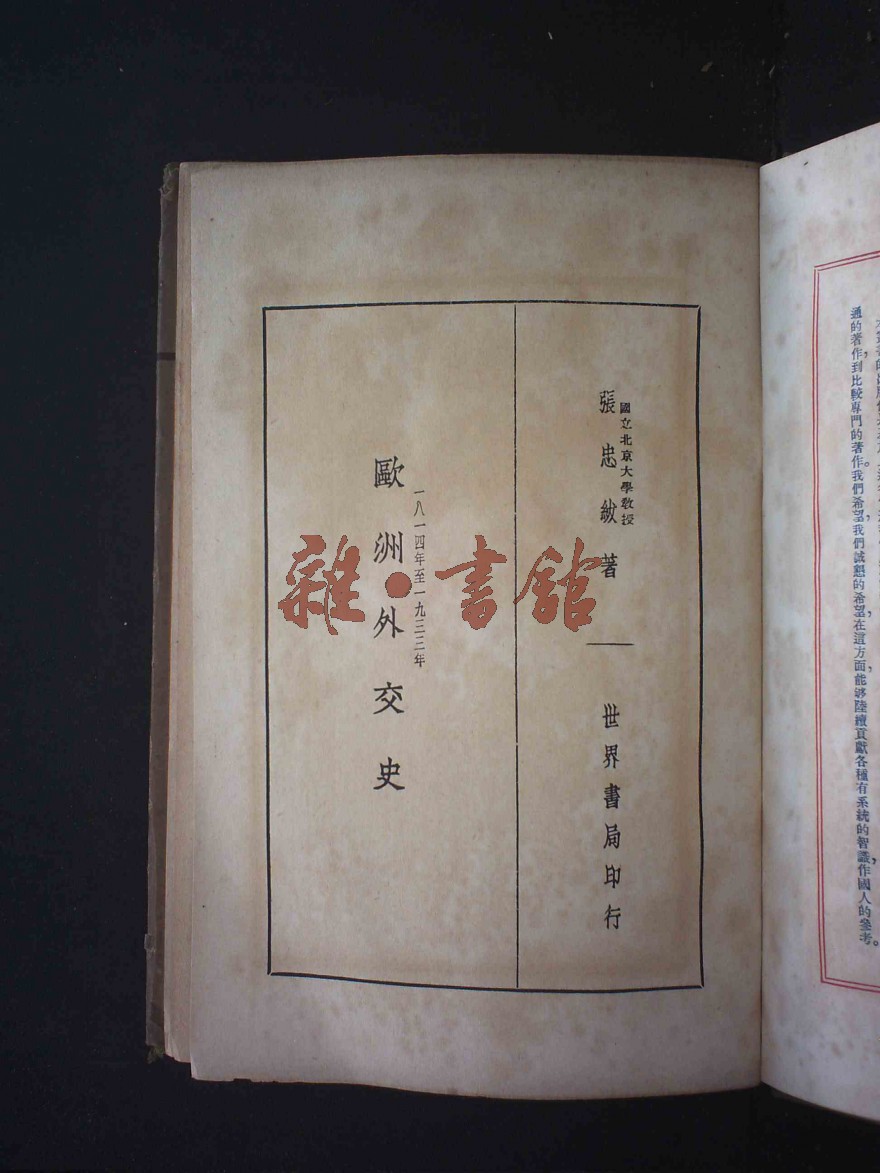 通的著作，到比較專門的著作。我們希望，我們誠懇的希望，在這方面能夠陸續貢獻各種有系統的智識，作國人的參考。
國立北京大學教授
張忠紱著
世界書局印行
一八一四年至一九三三年
歐洲外交史
雜·書館